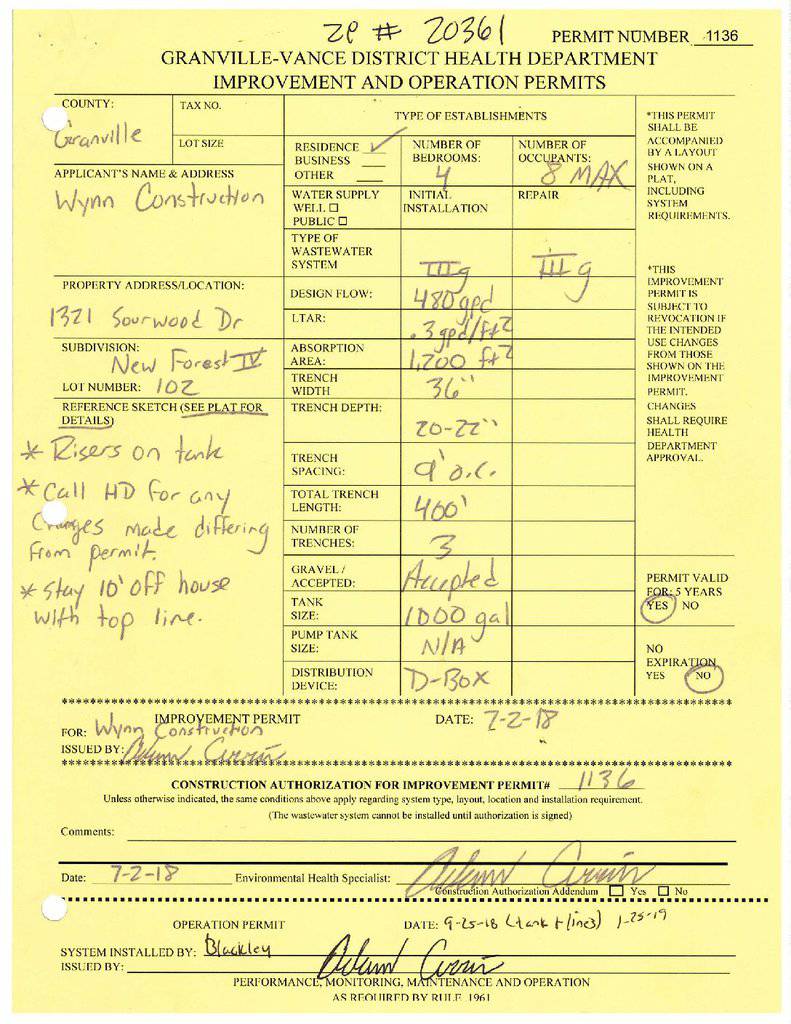 ZP # 20361
PERMIT NUMBER 1136
GRANVILLE-VANCE DISTRICT HEALTH DEPARTMENT
IMPROVEMENT AND OPERATION PERMITS
COUNTY:
Granville
TAX NO.
LOT SIZE
APPLICANT'S NAME & ADDRESS
Wynn Construction
PROPERTY ADDRESS/LOCATION:
1321 Sourwood Dr
SUBDIVISION:
New Forest IV
LOT NUMBER: 102
REFERENCE SKETCH (SEE PLAT FOR
DETAILS)
* Risers on tank
* Call HD for any
Changes made differing
from permit.
* Stay 10' off house
with top line.
TYPE OF ESTABLISHMENTS
RESIDENCE ✓
BUSINESS
OTHER
NUMBER OF
BEDROOMS:
4
NUMBER OF
OCCUPANTS:
8 MAX
WATER SUPPLY
WELL ☐
PUBLIC ☐
INITIAL
INSTALLATION
REPAIR
TYPE OF
WASTEWATER
SYSTEM
IIIg
IIIg
DESIGN FLOW:
480 gpd
LTAR:
.3 gpd/ft²
ABSORPTION
AREA:
1,200 ft²
TRENCH
WIDTH
36"
TRENCH DEPTH:
20-22"
TRENCH
SPACING:
9' o.c.
TOTAL TRENCH
LENGTH:
400'
NUMBER OF
TRENCHES:
3
GRAVEL /
ACCEPTED:
Accepted
TANK
SIZE:
1000 gal
PUMP TANK
SIZE:
N/A
DISTRIBUTION
DEVICE:
D-Box
*THIS PERMIT
SHALL BE
ACCOMPANIED
BY A LAYOUT
SHOWN ON A
PLAT,
INCLUDING
SYSTEM
REQUIREMENTS.
*THIS
IMPROVEMENT
PERMIT IS
SUBJECT TO
REVOCATION IF
THE INTENDED
USE CHANGES
FROM THOSE
SHOWN ON THE
IMPROVEMENT
PERMIT.
CHANGES
SHALL REQUIRE
HEALTH
DEPARTMENT
APPROVAL.
PERMIT VALID
FOR: 5 YEARS
YES NO
NO
EXPIRATION
YES NO
IMPROVEMENT PERMIT
DATE: 7-2-18
FOR: Wynn Construction
ISSUED BY:
CONSTRUCTION AUTHORIZATION FOR IMPROVEMENT PERMIT# 1136
Unless otherwise indicated, the same conditions above apply regarding system type, layout, location and installation requirement.
(The wastewater system cannot be installed until authorization is signed)
Comments:
Date: 7-2-18 Environmental Health Specialist:
Construction Authorization Addendum ☐ Yes ☐ No
OPERATION PERMIT
DATE: 9-25-18 (tank + lines) 1-25-19
SYSTEM INSTALLED BY: Blackley
ISSUED BY:
PERFORMANCE, MONITORING, MAINTENANCE AND OPERATION
AS REQUIRED BY RULE .1961